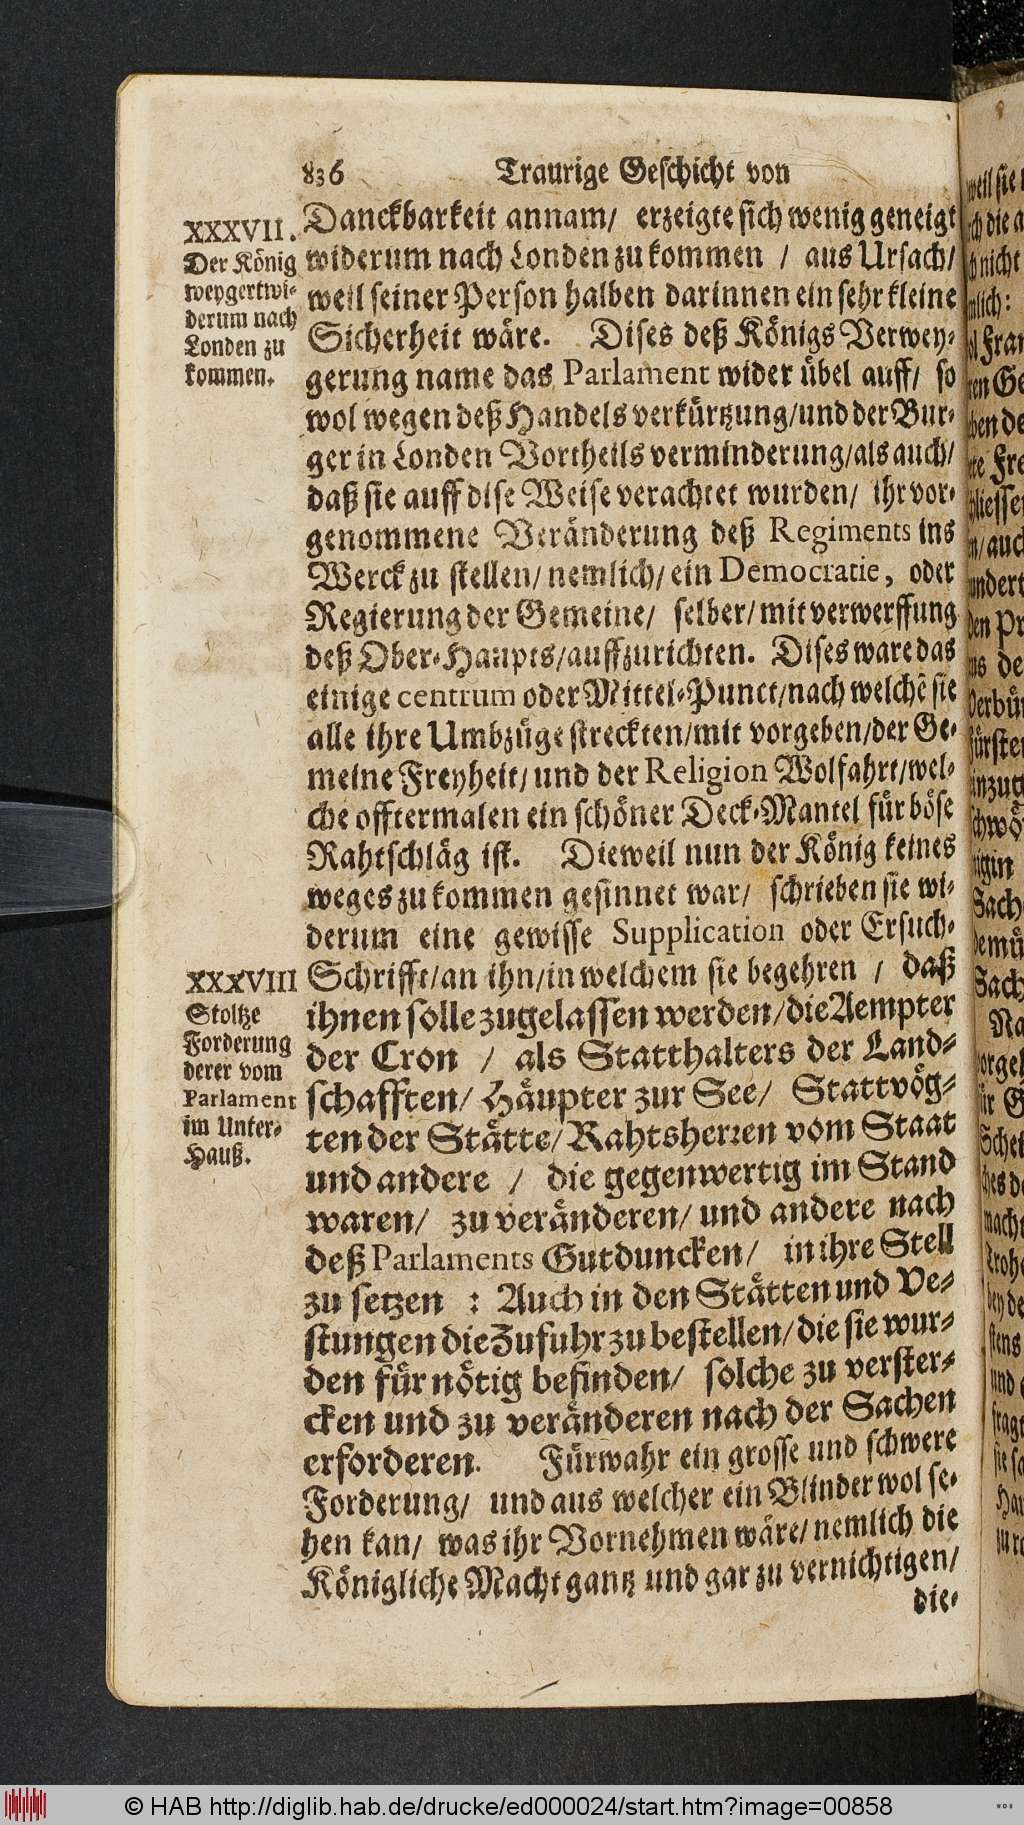 836 Traurige Geschicht von
XXXVII.
Der König
weygert wi-
derum nach
Londen zu
kommen.
Danckbarkeit annam/ erzeigte sich wenig geneigt
widerum nach Londen zu kommen / aus Ursach/
weil seiner Person halben darinnen ein sehr kleine
Sicherheit wäre. Dises deß Königs Verwey-
gerung name das Parlament wider übel auff/ so
wol wegen deß Handels verkürtzung/und der Bur-
ger in Londen Vortheils verminderung/als auch/
daß sie auff dise Weise verachtet wurden/ ihr vor-
genommene Veränderung deß Regiments ins
Werck zu stellen/nemlich/ein Democratie, oder
Regierung der Gemeine/ selber/mit verwerffung
deß Ober-Haupts/auffzurichten. Dises ware das
einige centrum oder Mittel-Punct/nach welchē sie
alle ihre Umbzüge streckten/mit vorgeben/der Ge-
meine Freyheit/und der Religion Wolfahrt/wel-
che offtermalen ein schöner Deck-Mantel für böse
Rahtschläg ist. Dieweil nun der König keines
weges zu kommen gesinnet war/ schrieben sie wi-
derum eine gewisse Supplication oder Ersuch-
XXXVIII
Stoltze
Forderung
derer vom
Parlament
im Unter-
Hauß.
Schrifft/an ihn/in welchem sie begehren / daß
ihnen solle zugelassen werden/die Aempter
der Cron / als Statthalters der Land-
schafften/ Häupter zur See/ Stattvög-
ten der Stätte/Rahtsherren vom Staat
und andere / die gegenwertig im Stand
waren/ zu veränderen/und andere nach
deß Parlaments Gutduncken/ in ihre Stell
zu setzen : Auch in den Stätten und Ve-
stungen die Zufuhr zu bestellen/die sie wur-
den für nötig befinden/ solche zu verster-
cken und zu veränderen nach der Sachen
erforderen. Fürwahr ein grosse und schwere
Forderung/ und aus welcher ein Blinder wol se-
hen kan/ was ihr Vornehmen wäre/nemlich die
Königliche Macht gantz und gar zu vernichtigen/
die-
© HAB http://diglib.hab.de/drucke/ed000024/start.htm?image=00858